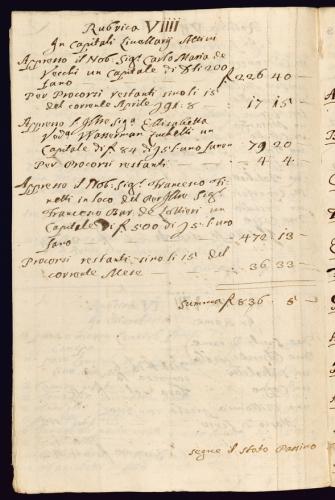 Rubrica VIIII
In Capitali Livellarij Attivi
Appresso il Nob. Sigr Carlo Maria de
Vecchi un Capitale di 200
fano f 226 40
Per Procorsi restanti sino li 15
del corrente Aprile 17 15
Appresso l'Illre Siga Elisabetta
Voda Wasserman Zuchelli un
Capitale di f 84 di 79 20
Per Procorsi restanti 4 4
Appresso il Nob. Sigr Francesco
in loco del Sigr
Francesco Bar. de un
Capitale di f 500 di
fano 472 13
Procorsi restanti sino li 15 del
corrente Mese 36 33
Summa f 836 5
segue il stato Passivo